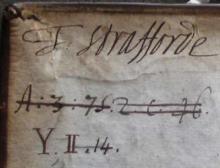 T Strafforde
A:3:75.2 c.46.
Y.II.14.